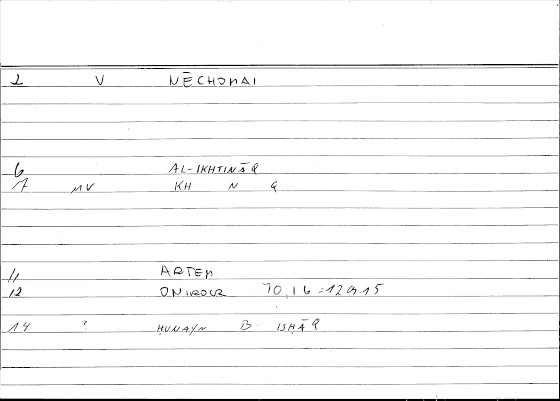 2 V NĒCHOMAI
6 AL-IKHTINĀQ
7 MV KH N Q
11 ARTEM
12 ONIROCR 70,16=129,15
14 ? HUNAYN B ISHĀQ